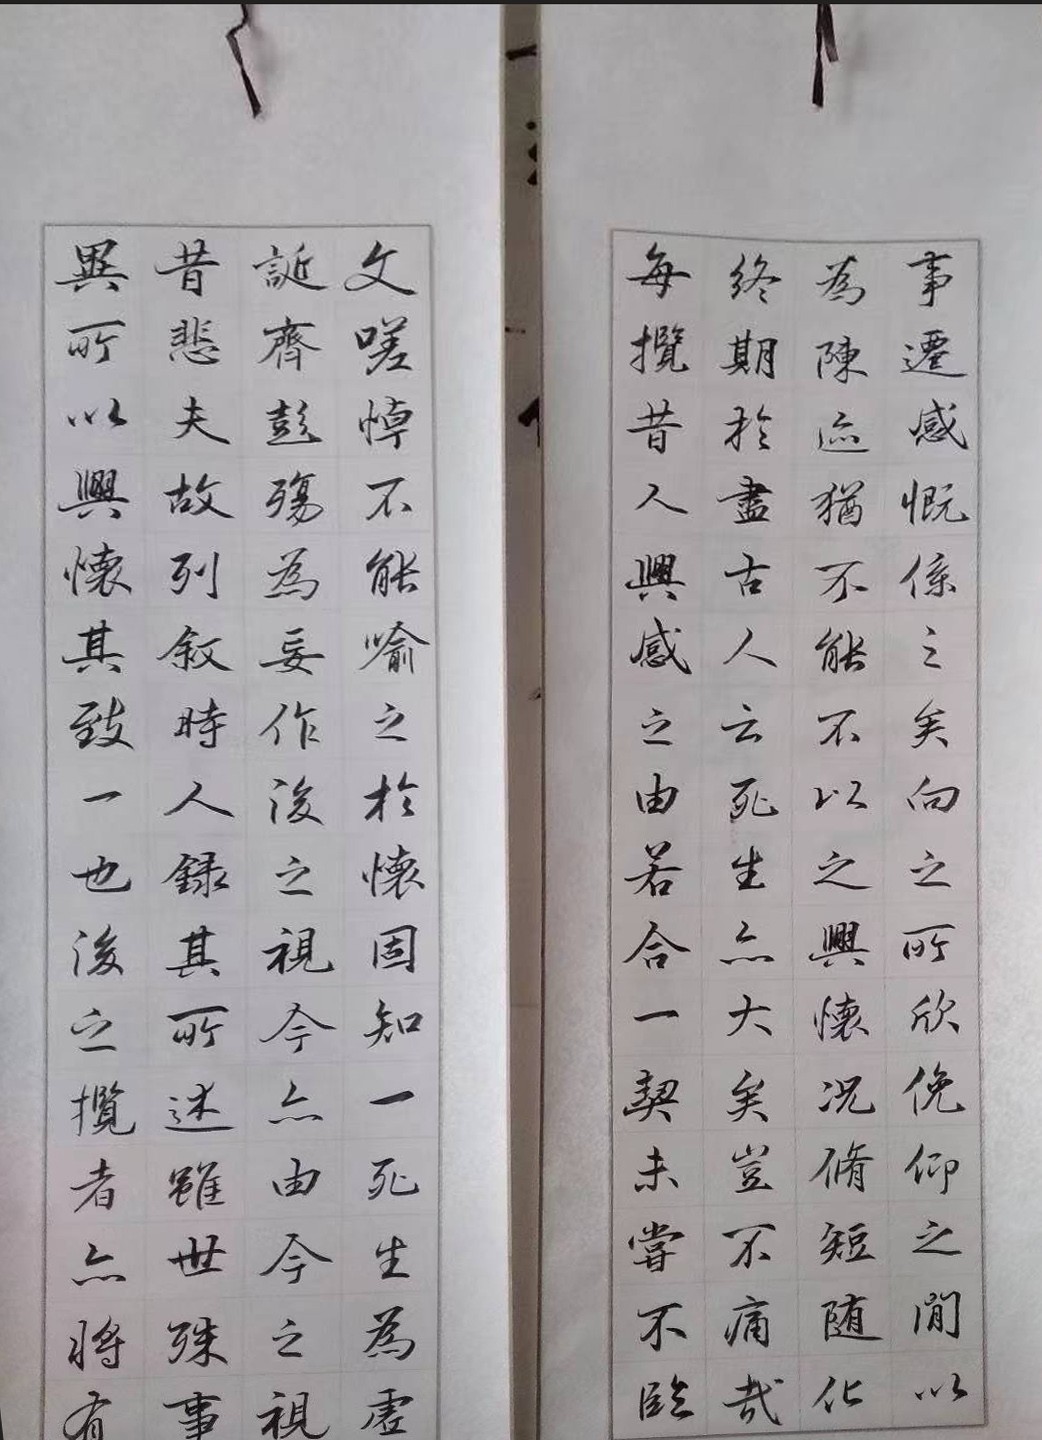 事遷感慨係之矣向之所欣俛仰之閒以
為陳迹猶不能不以之興懷況脩短随化
終期於盡古人云死生亦大矣豈不痛哉
每攬昔人興感之由若合一契未嘗不臨
文嗟悼不能喻之於懷固知一死生為虛
誕齊彭殤為妄作後之視今亦由今之視
昔悲夫故列叙時人錄其所述雖世殊事
異所以興懷其致一也後之攬者亦將有